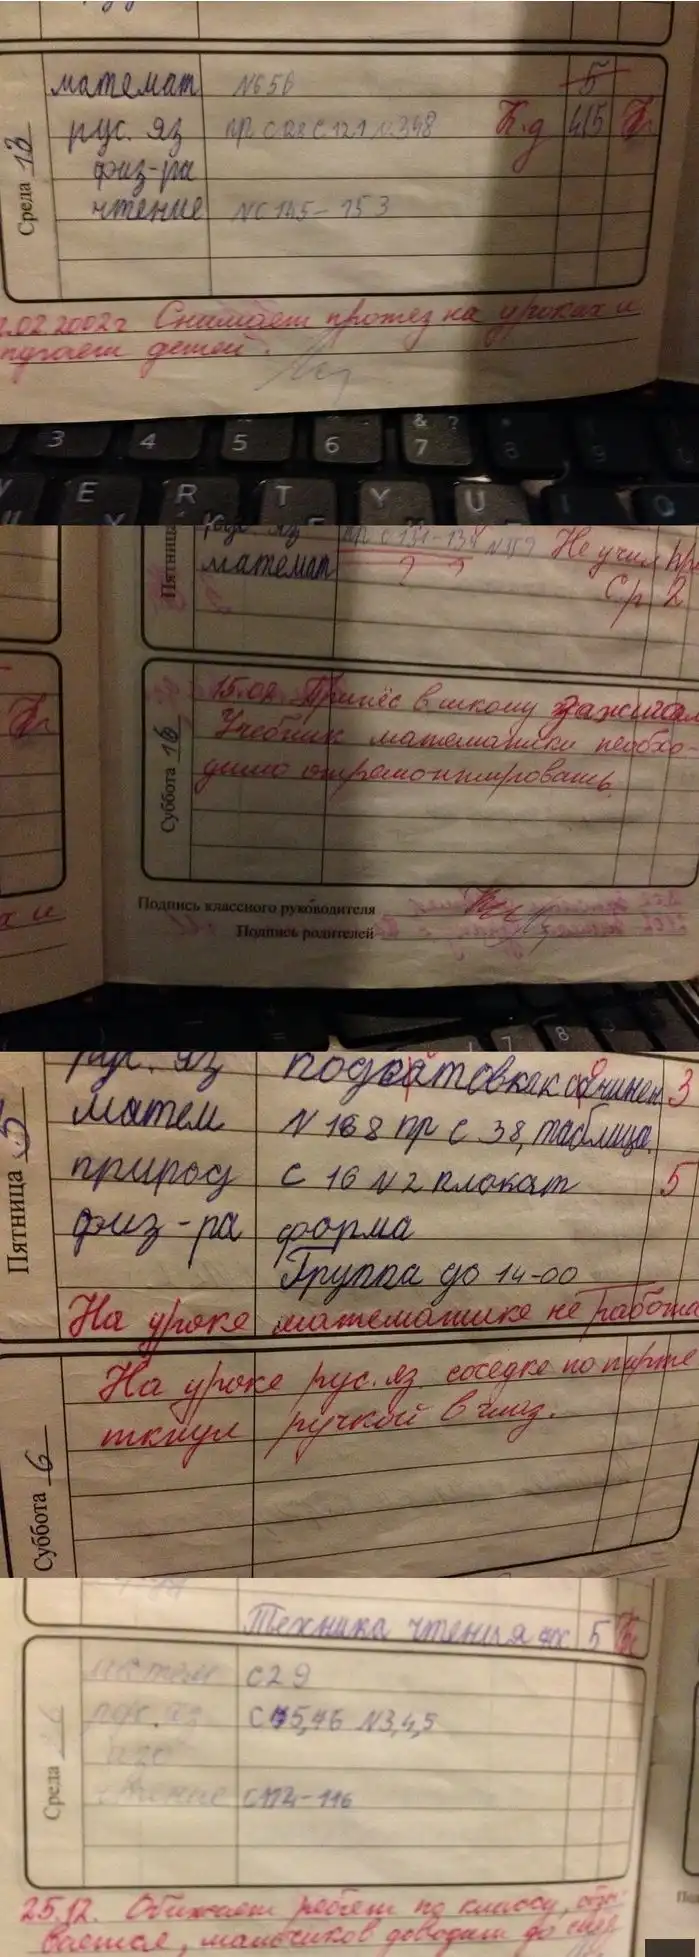 Среда 13
математ N65В 5
рус. яз пр с 28 с 121 N 348 К.д 4/5
физ-ра
чтение N С 145-153
.02 2002г Снимает протез на уроках и
пугает детей.
3 4 5 6 & ? 7 8 9
E R T Y U I O
Пятница рус. яз пр с 131-134 N 359 Не учил пра
математ ? ? Ср 2
Суббота 16
15.02 Принёс в школу зажигал
Учебник математики необхо-
димо отремонтировать.
х и
Подпись классного руководителя
Подпись родителей
7 8
Пятница 5
рус. яз подготовка к сочинен 3
матем N 168 пр с 38, таблица.
природ с 16 N2 плакат 5
физ-ра форма
Группа до 14-00
На уроке математике не работа
Суббота 6
На уроке рус. яз. соседке по парте
ткнул ручкой в глаз.
Техника чтения 5
Среда
матем с 29
рус. яз С 45,46 N3,4,5
изо
чтение с 114-116
25.12. Обижает ребят по классу, обзы-
вается, мальчиков доводит до